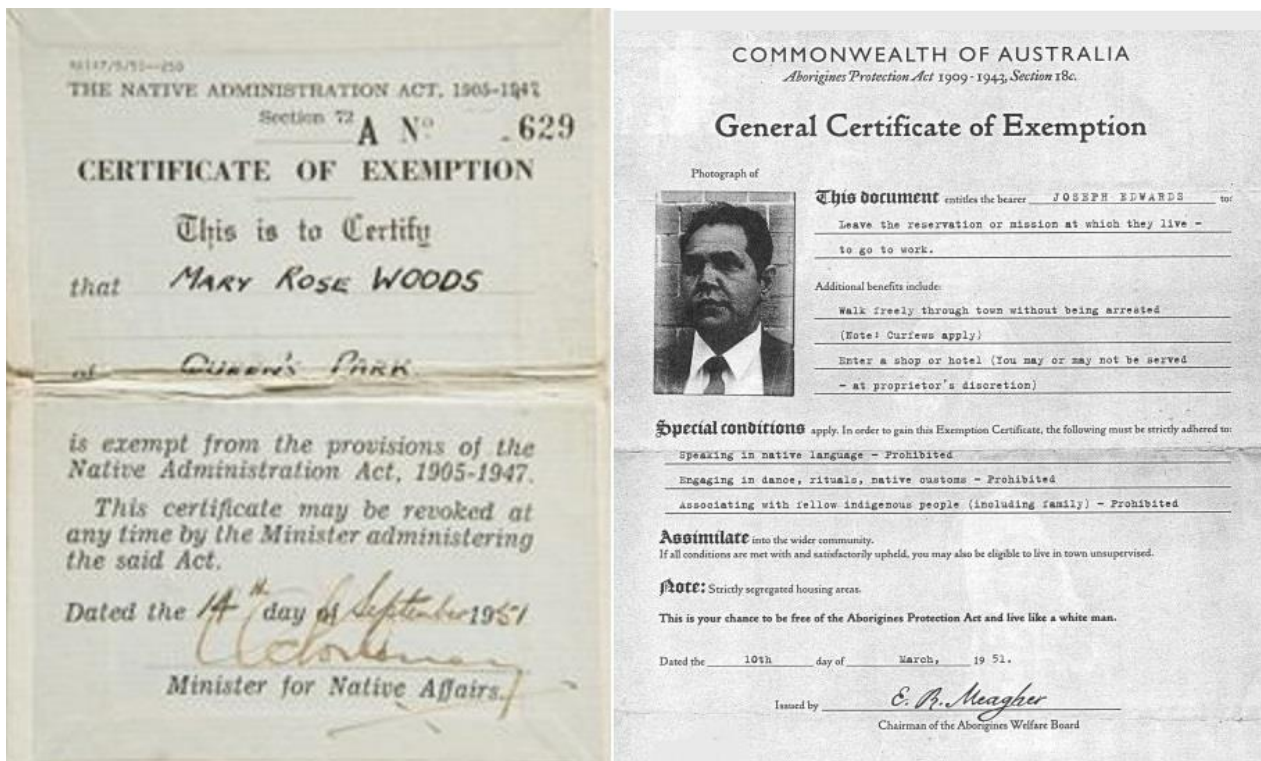 THE NATIVE ADMINISTRATION ACT, 1905-1947
Section 72
A Nº 629
CERTIFICATE OF EXEMPTION
This is to Certify
that MARY ROSE WOODS
of QUEEN'S PARK
is exempt from the provisions of the
Native Administration Act, 1905-1947.
This certificate may be revoked at
any time by the Minister administering
the said Act.
Dated the 14th day of September 1951
Minister for Native Affairs.
COMMONWEALTH OF AUSTRALIA
Aborigines Protection Act 1909 - 1943, Section 18c.
General Certificate of Exemption
Photograph of
This document entitles the bearer JOSEPH EDWARDS to:
Leave the reservation or mission at which they live -
to go to work.
Additional benefits include:
Walk freely through town without being arrested
(Note: Curfews apply)
Enter a shop or hotel (You may or may not be served
- at proprietor's discretion)
Special conditions apply. In order to gain this Exemption Certificate, the following must be strictly adhered to:
Speaking in native language - Prohibited
Engaging in dance, rituals, native customs - Prohibited
Associating with fellow indigenous people (including family) - Prohibited
Assimilate into the wider community.
If all conditions are met with and satisfactorily upheld, you may also be eligible to live in town unsupervised.
Note: Strictly segregated housing areas.
This is your chance to be free of the Aborigines Protection Act and live like a white man.
Dated the 10th day of March, 19 51.
Issued by E. R. Meagher
Chairman of the Aborigines Welfare Board